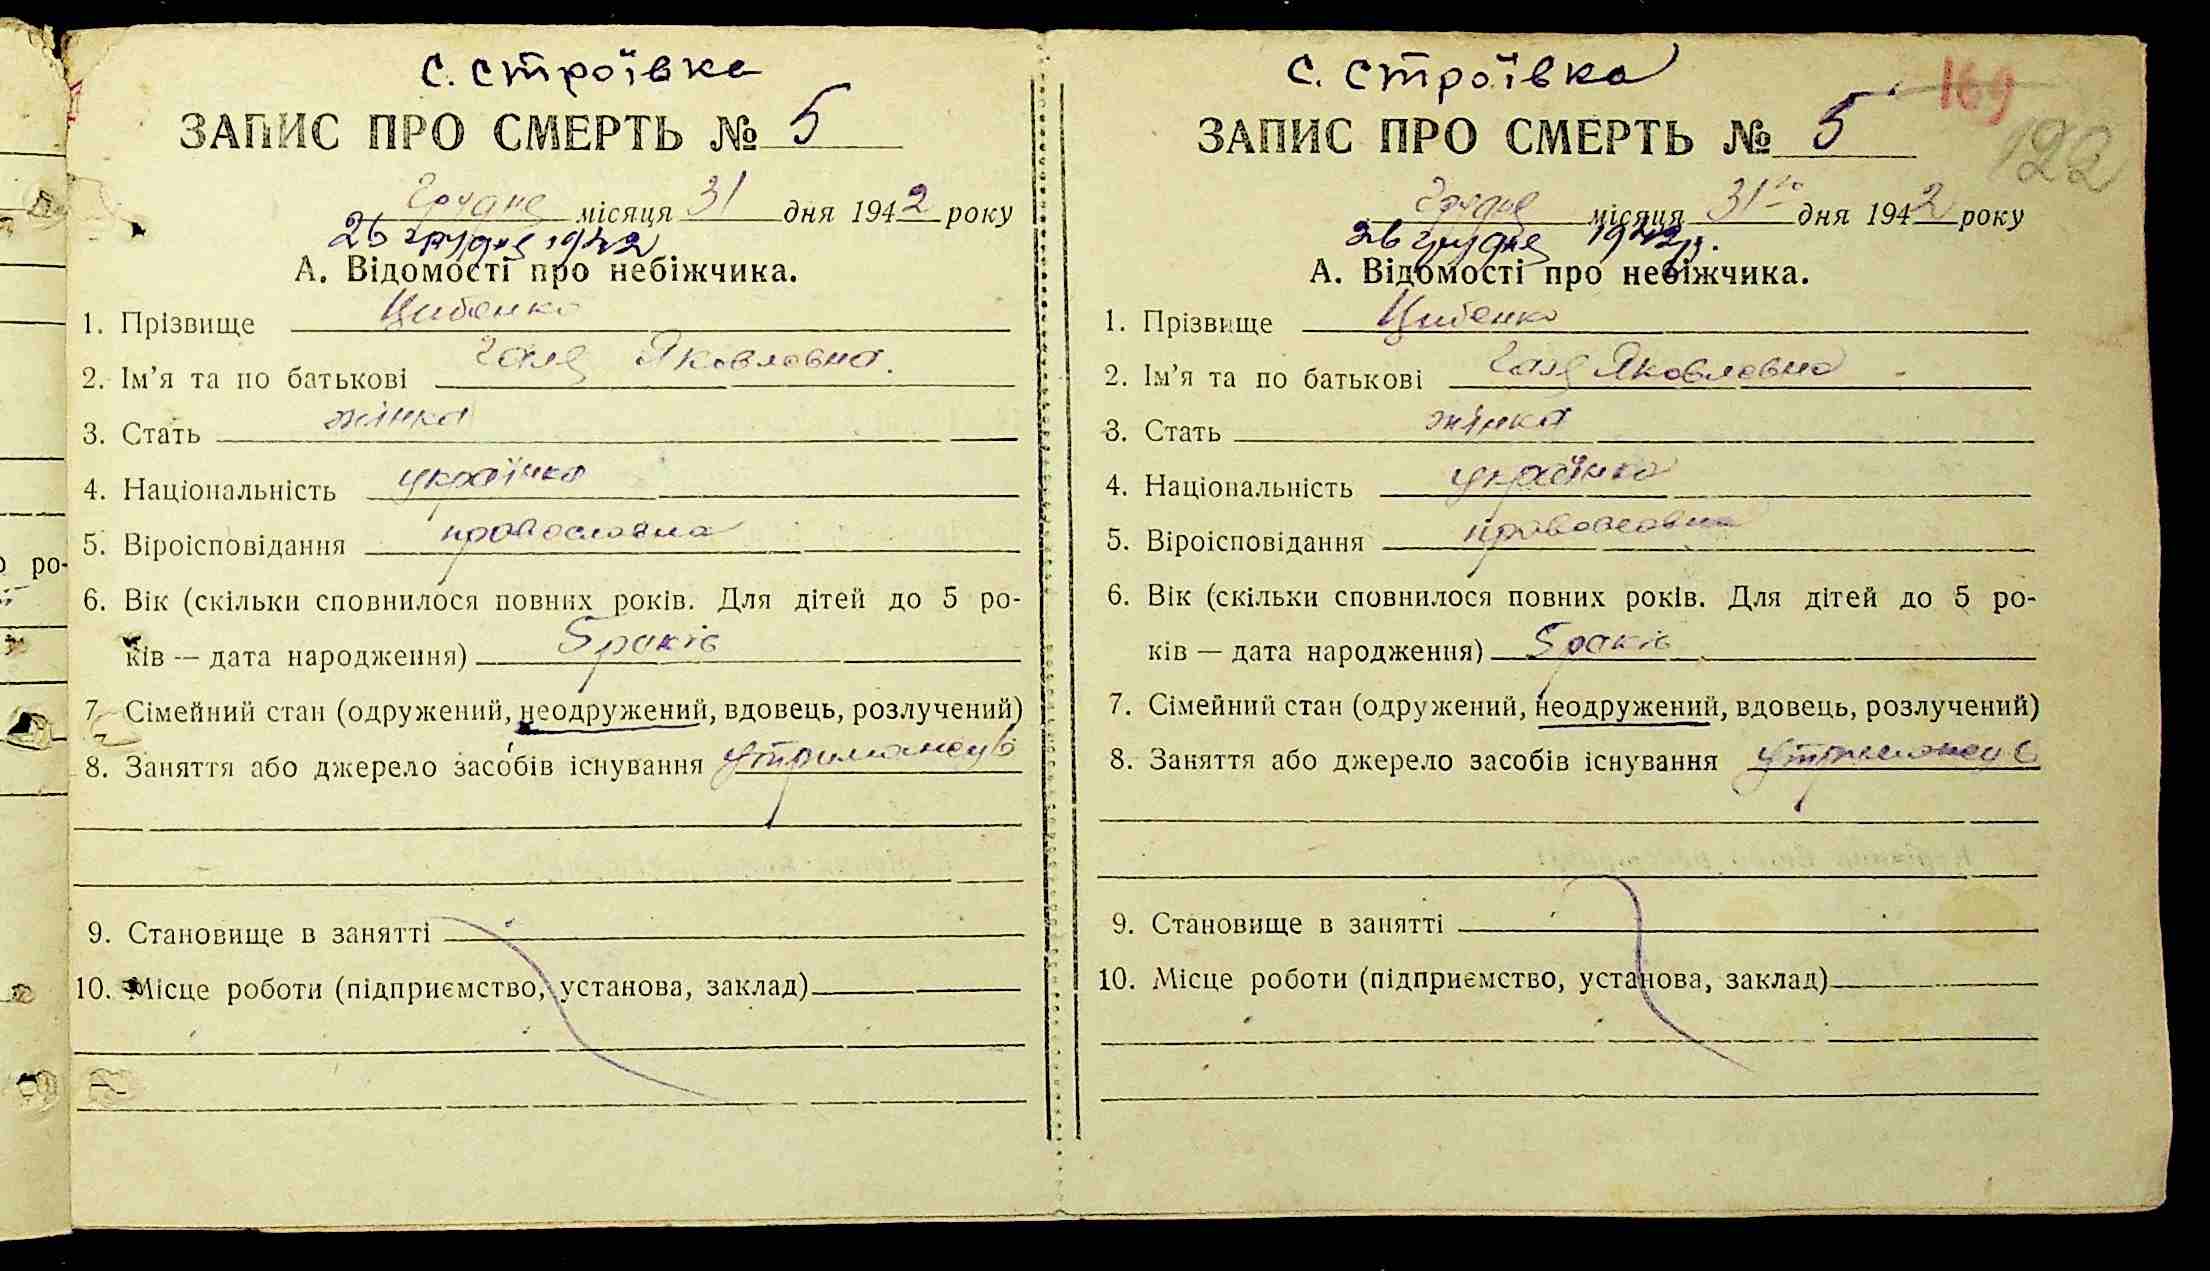 с. Строївка
ЗАПИС ПРО СМЕРТЬ № 5
Грудня місяця 31 дня 1942 року
26 грудня 1942
А. Відомості про небіжчика.
1. Прізвище Цибенко
2. Ім’я та по батькові Галя Яковловна.
3. Стать жінка
4. Національність українка
5. Віроісповідання православна
6. Вік (скільки сповнилося повних років. Для дітей до 5 ро-
ків — дата народження) 5 років
7. Сімейний стан (одружений, неодружений, вдовець, розлучений)
8. Заняття або джерело засобів існування
9. Становище в занятті
10. Місце роботи (підприємство, установа, заклад)
с. Строївка
169
ЗАПИС ПРО СМЕРТЬ № 5
122
Грудня місяця 31го дня 1942 року
26 грудня 1942 р.
А. Відомості про небіжчика.
1. Прізвище Цибенко
2. Ім’я та по батькові Галя Яковловна
3. Стать жінка
4. Національність українка
5. Віроісповідання православна
6. Вік (скільки сповнилося повних років. Для дітей до 5 ро-
ків — дата народження) 5 років
7. Сімейний стан (одружений, неодружений, вдовець, розлучений)
8. Заняття або джерело засобів існування
9. Становище в занятті
10. Місце роботи (підприємство, установа, заклад)
ро-